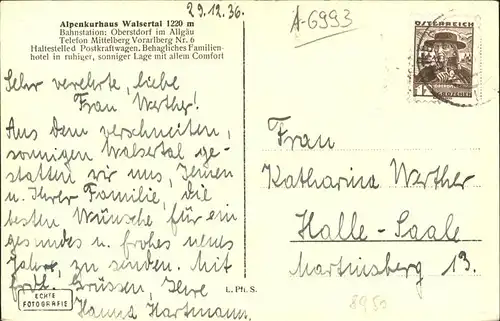 29.12.36.
A-6993
Alpenkurhaus Walsertal 1220 m
Bahnstation: Oberstdorf im Allgäu
Telefon Mittelberg Vorarlberg Nr. 6
Haltestelle d Postkraftwagen. Behagliches Familien-
hotel in ruhiger, sonniger Lage mit allem Comfort
Sehr verehrte, liebe
Frau Werther!
Aus dem verschneiten,
sonnigen Walsertal ge-
statten wir uns, Ihnen
u. Ihrer Familie, die
besten Wünsche für ein
gesundes u. frohes neues
Jahr, zu senden. Mit
frdl. Grüssen, Ihre
Hanna Hartmann.
ECHTE
FOTOGRAFIE
L. Ph. S.
ÖSTERREICH
12 GROSCHEN
Frau
Katharina Werther
Halle-Saale
Martinsberg 13.
8980